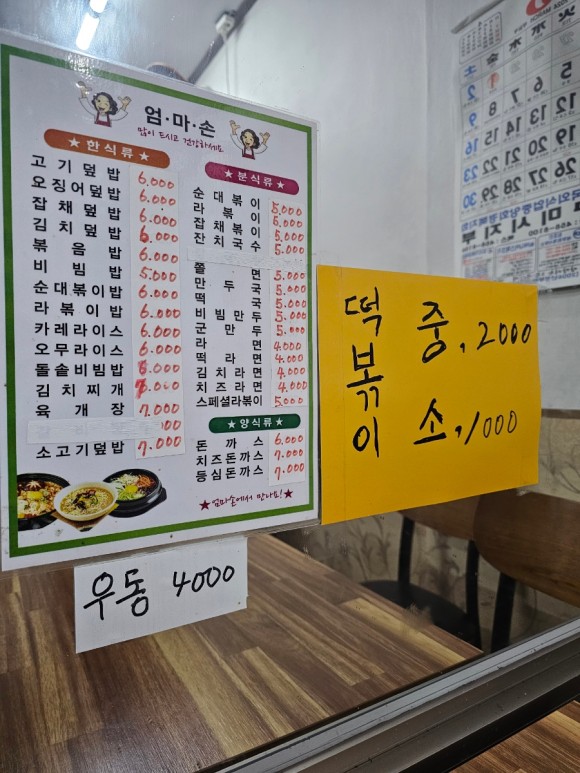 엄·마·손
많이 드시고 건강하세요
★ 한식류 ★
고기덮밥 6.000
오징어덮밥 6.000
잡채덮밥 6.000
김치덮밥 6.000
볶음밥 6.000
비빔밥 5.000
순대볶이밥 6.000
라볶이밥 6.000
카레라이스 6.000
오무라이스 6.000
돌솥비빔밥
김치찌개
육개장 7.000
소고기덮밥 7.000
★ 분식류 ★
순대볶이 5.000
라볶이 5.000
잡채볶이 5.000
잔치국수 5.000
쫄면 5.000
만두국 5.000
떡국 5.000
비빔만두 5.000
군만두 5.000
라면 4000
떡라면 4.000
김치라면 4.000
치즈라면 4.000
스페셜라볶이 5.000
★ 양식류 ★
돈까스 6.000
치즈돈까스 7.000
등심돈까스 7.000
★엄마손에서 만나요!★
우동 4000
떡볶이
중, 2000
소, 1000
5
2 8 12
9 15 19
16 22 26
23 29
30
구미시지부